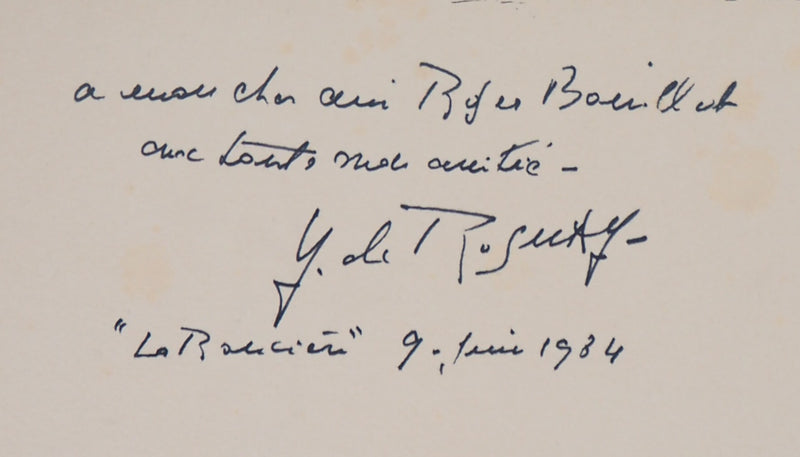 a mon cher ami Roger Bouillot
avec toute mon amitié -
Y. de Rosnay -
" " 9. Juin 1984